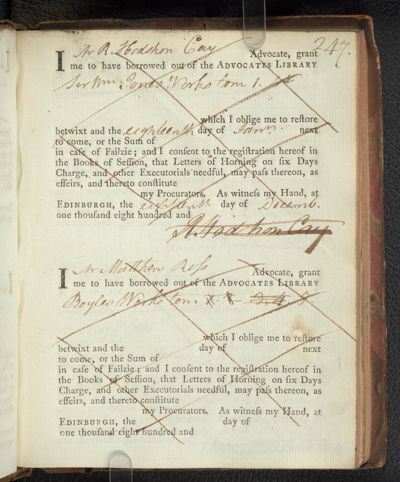 247.
I Mr R. Hodshon Cay Advocate, grant
me to have borrowed out of the ADVOCATES LIBRARY
Sir Wm Jones' Works tom 1.
which I oblige me to reſtore
betwixt and the eighteenth day of Janry. next
to come, or the Sum of
in caſe of Failzie; and I conſent to the regiſtration hereof in
the Books of Seſſion, that Letters of Horning on ſix Days
Charge, and other Executorials needful, may paſs thereon, as
effeirs, and thereto conſtitute
my Procurators. As witneſs my Hand, at
EDINBURGH, the eighteenth day of Decemb.
one thouſand eight hundred and
R. Hodshon Cay
I Mr Matthew Ross Advocate, grant
me to have borrowed out of the ADVOCATES LIBRARY
Boyles Works tom
which I oblige me to reſtore
betwixt and the day of next
to come, or the Sum of
in caſe of Failzie; and I conſent to the regiſtration hereof in
the Books of Seſſion, that Letters of Horning on ſix Days
Charge, and other Executorials needful, may paſs thereon, as
effeirs, and thereto conſtitute
my Procurators. As witneſs my Hand, at
EDINBURGH, the day of
one thouſand eight hundred and